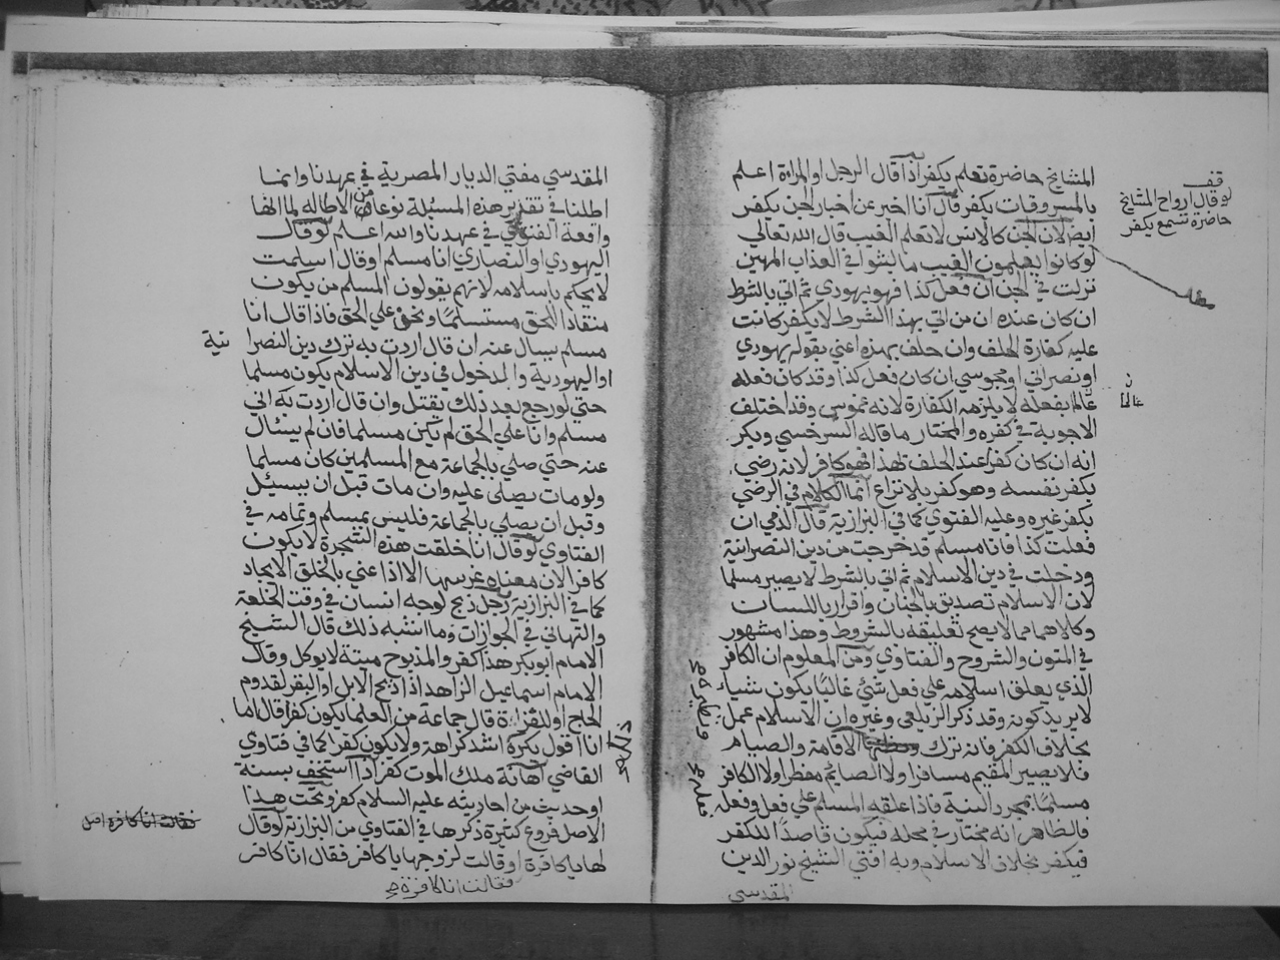 المشايخ حاضرة تعلم يكفر اذا قال الرجل او المراءة اعلم
بالمسروقات يكفر قال انا اخبر عن اخبار الجن يكفر
ايضا لان الجن كالانس لا تعلم الغيب قال الله تعالي
لو كانوا يعلمون الغيب ما لبثوا في العذاب المهين
نزلت في الجن ان فعل كذا فهو يهودي ثم اتي بالشرط
ان كان عنده ان من اتي بهذا الشرط لا يكفر كانت
عليه كفارة الحلف وان حلف بهذه اعني بقوله يهودي
او نصراني او مجوسي ان كان فعل كذا وقد كان فعله
عالما بفعله لا يلزمه الكفارة لانه غموس وقد اختلف
الاجوبة في كفره والمختار ما قاله السرخسي وبكر
انه ان كان كفرا عند الحلف بهذا فهو كافر لانه رضي
بكفر نفسه وهو كفر بلا نزاع انما الكلام في الرضي
بكفر غيره وعليه الفتوي كما في البزازية قال الذمي ان
فعلت كذا فانا مسلم قد خرجت من دين النصرانية
ودخلت في دين الاسلام ثم اتي بالشرط لا يصير مسلما
لان الاسلام تصديق بالجنان واقرار باللسان
وكلاهما مما لا يصح تعليقه بالشروط وهذا مشهور
في المتون والشروح والفتاوي ومن المعلوم ان الكافر
الذي يعلق اسلامه علي فعل شئ غالبا يكون شياء
لا يريد كونه وقد ذكر الزيلعي وغيره ان الاسلام عمل
بخلاف الكفر فانه ترك الاقامة والصيام
فلا يصير المقيم مسافرا ولا الصايم مفطرا ولا الكافر
مسلما بمجرد النية فاذا علقه المسلم علي فعل وفعله
فالظاهر انه مختار في محله فيكون قاصدا للكفر
فيكفر بخلاف الاسلام وبه افتي الشيخ نور الدين
المقدسي
قف
لو قال ارواح المشايخ
حاضرة تسمع يكفر
عالما
المقدسي مفتي الديار المصرية في عهدنا وانما
اطلنا في تقدير هذه المسئلة نوعا من الاطاله لما انها
واقعة الفتوي في عهدنا والله اعلم لو قال
اليهودي او النصاري انا مسلم او قال اسلمت
لا يحكم باسلامه لانهم يقولون المسلم من يكون
منقادا للحق مستسلما ونحن علي الحق فاذا قال انا
مسلم يسال عنه ان قال اردت به ترك دين النصرا نية
او اليهودية والدخول في دين الاسلام يكون مسلما
حتي لو رجع بعد ذلك يقتل وان قال اردت به اني
مسلم وانا علي الحق لم يكن مسلما فان لم يسئال
عنه حتي صلي بالجماعة مع المسلمين كان مسلما
ولو مات يصلي عليه وان مات قبل ان يسئيل
وقبل ان يصلي بالجماعة فليس بمسلم وتمامه في
الفتاوي لو قال انا خلقت هذه الشجرة لا يكون
كافرا لان معناه غرسها الا اذا عني بالخلق الايجاد
كما في البزازية رجل ذبح لوجه انسان في وقت الخلعة
والتهاني في الجوازات وما اشبه ذلك قال الشيخ
الامام ابو بكر هذا كفر والمذبوح ميتة لا يوكل وقال
الامام اسماعيل الزاهد اذا ذبح الابل او البقر لقدوم
الحاج او للغزاة قال جماعة من العلما يكون كفرا قال اما
انا اقول يكره اشد كراهة ولا يكون كفرا كما في فتاوي
القاضي اهانة ملك الموت كفر اذا استخف بسنة
او حديث من احاديثه عليه السلام كفر وتحت هذا
الاصل فروع كثيرة ذكرها في الفتاوي من البزازية لو قال
لها يا كافرة او قالت لزوجها يا كافر فقال انا كافر
فقالت انا كافرة صح